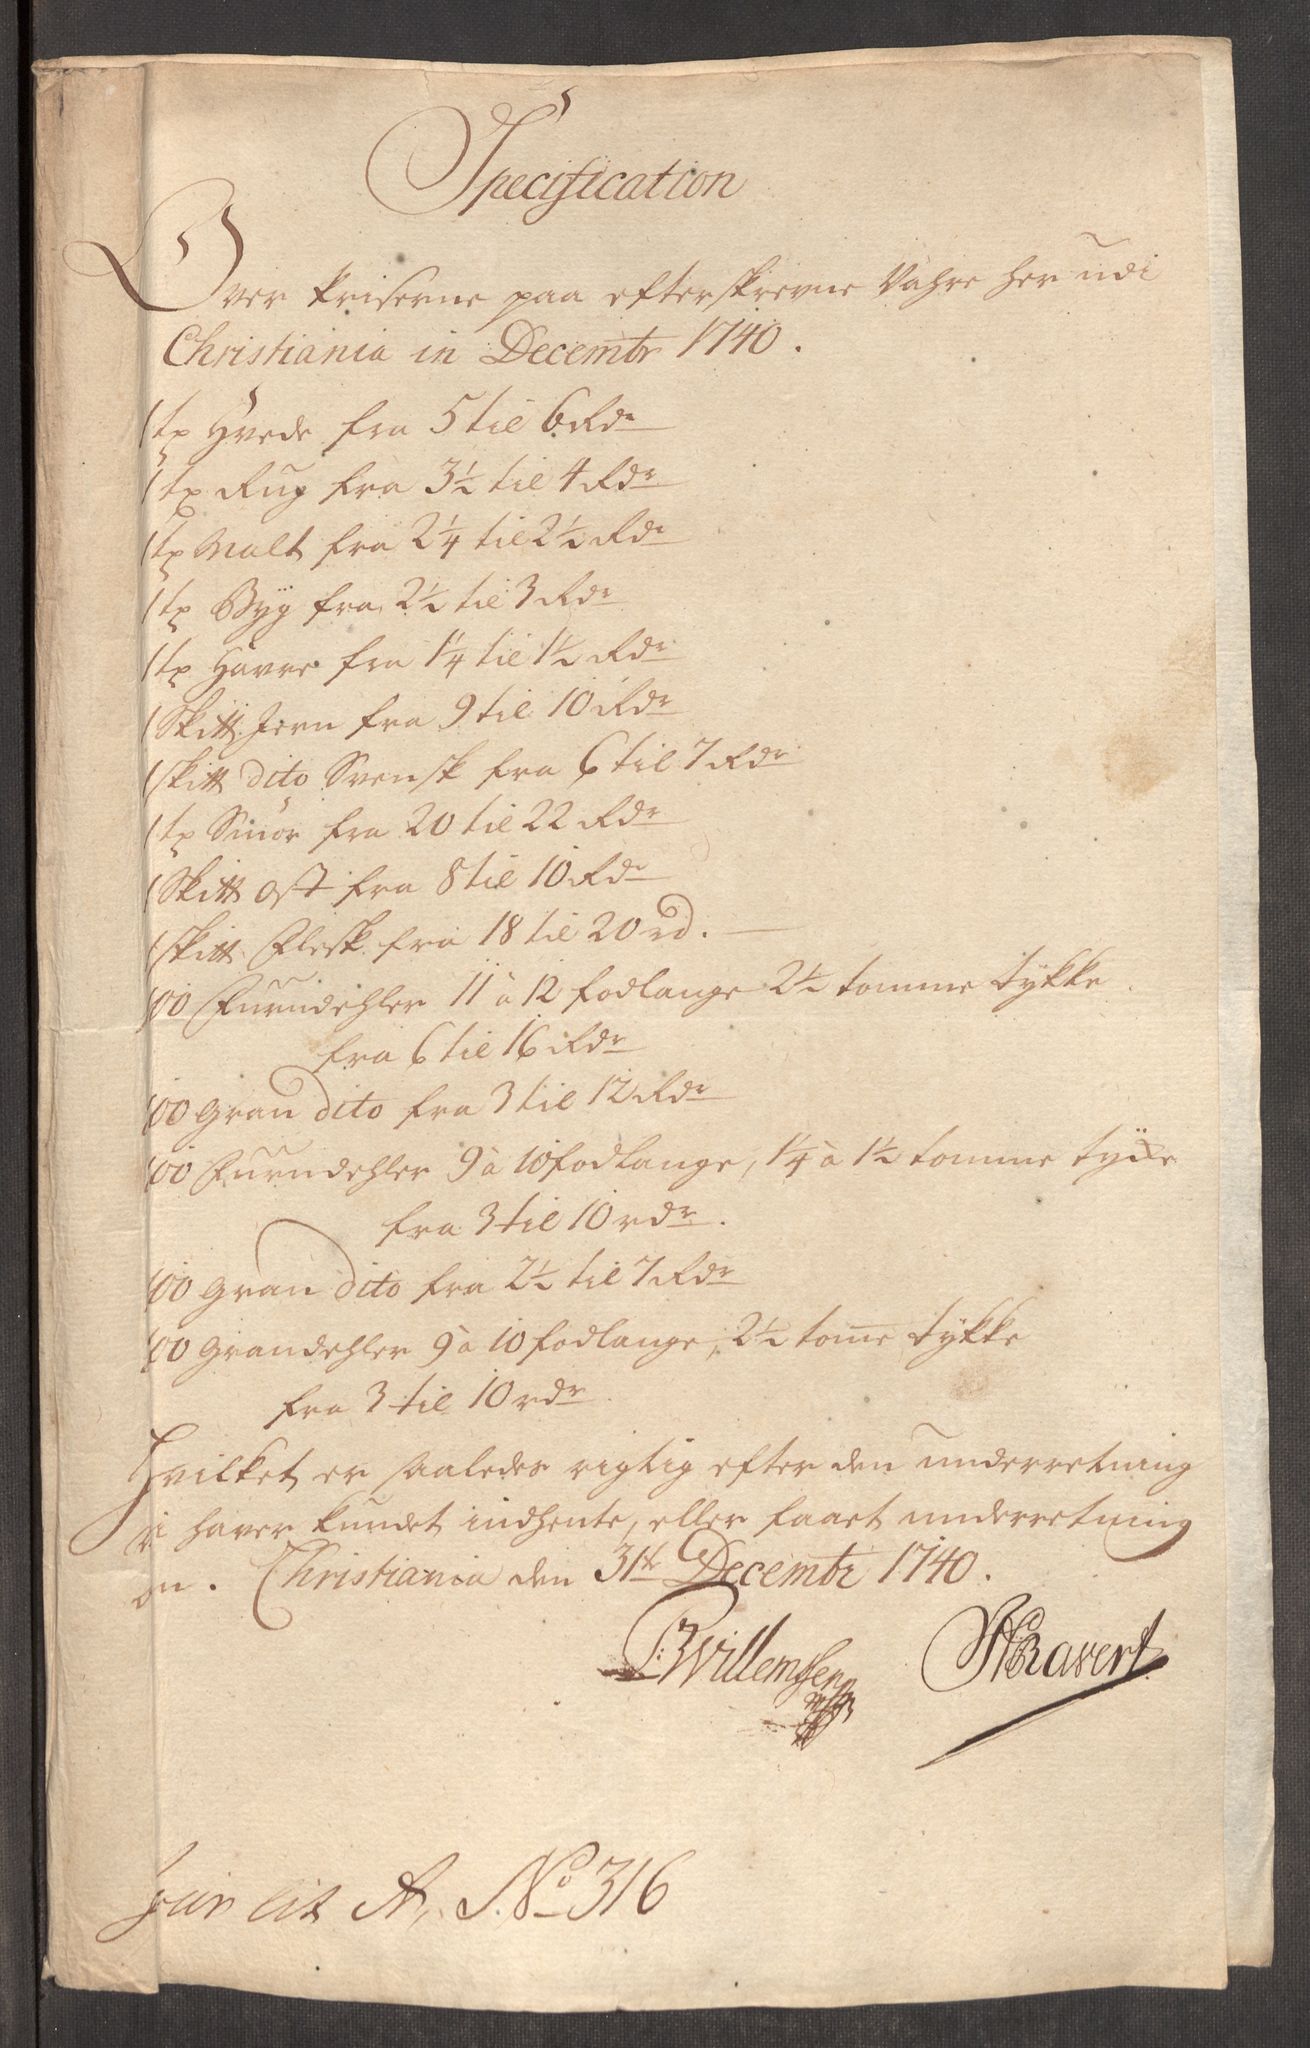 Specification
Over Priserne paa efterskrevne Vahre her udi
Christiania in Decembr 1740.
1 tr Hvede fra 5 til 6 Rdr
1 tr Rug fra 3½ til 4 Rdr
1 tr Malt fra 2¼ til 2½ Rdr
1 tr Byg fra 2½ til 3 Rdr
1 tr Havre fra 1¼ til 1½ Rdr
1 Sk℔ Jern fra 9 til 10 Rdr
1 sk℔ dito Svensk fra 6 til 7 Rdr
1 tr Smör fra 20 til 22 Rdr
1 Sk℔ Ost fra 8 til 10 Rdr
1 sk℔ Flesk fra 18 til 20 rd.
100 Furudehler 11 à 12 fodlange 2½ tomme tykke
fra 6 til 16 Rdr
100 Gran dito fra 3 til 12 Rdr
100 Furudehler 9 à 10 fodlange, 1¼ à 1½ tomme tycke
fra 3 til 10 rdr.
100 Gran dito fra 2½ til 7 Rdr
100 Grandehler 9 à 10 fodlange, 2½ tome tykke
fra 3 til 10 rdr.
Hvilket er saaledes rigtig efter den underretning
vi haver kundet indhente, eller faaet underretning
om. Christiania den 31te Decembr 1740.
Willemsen Ravert
lit A, No 316